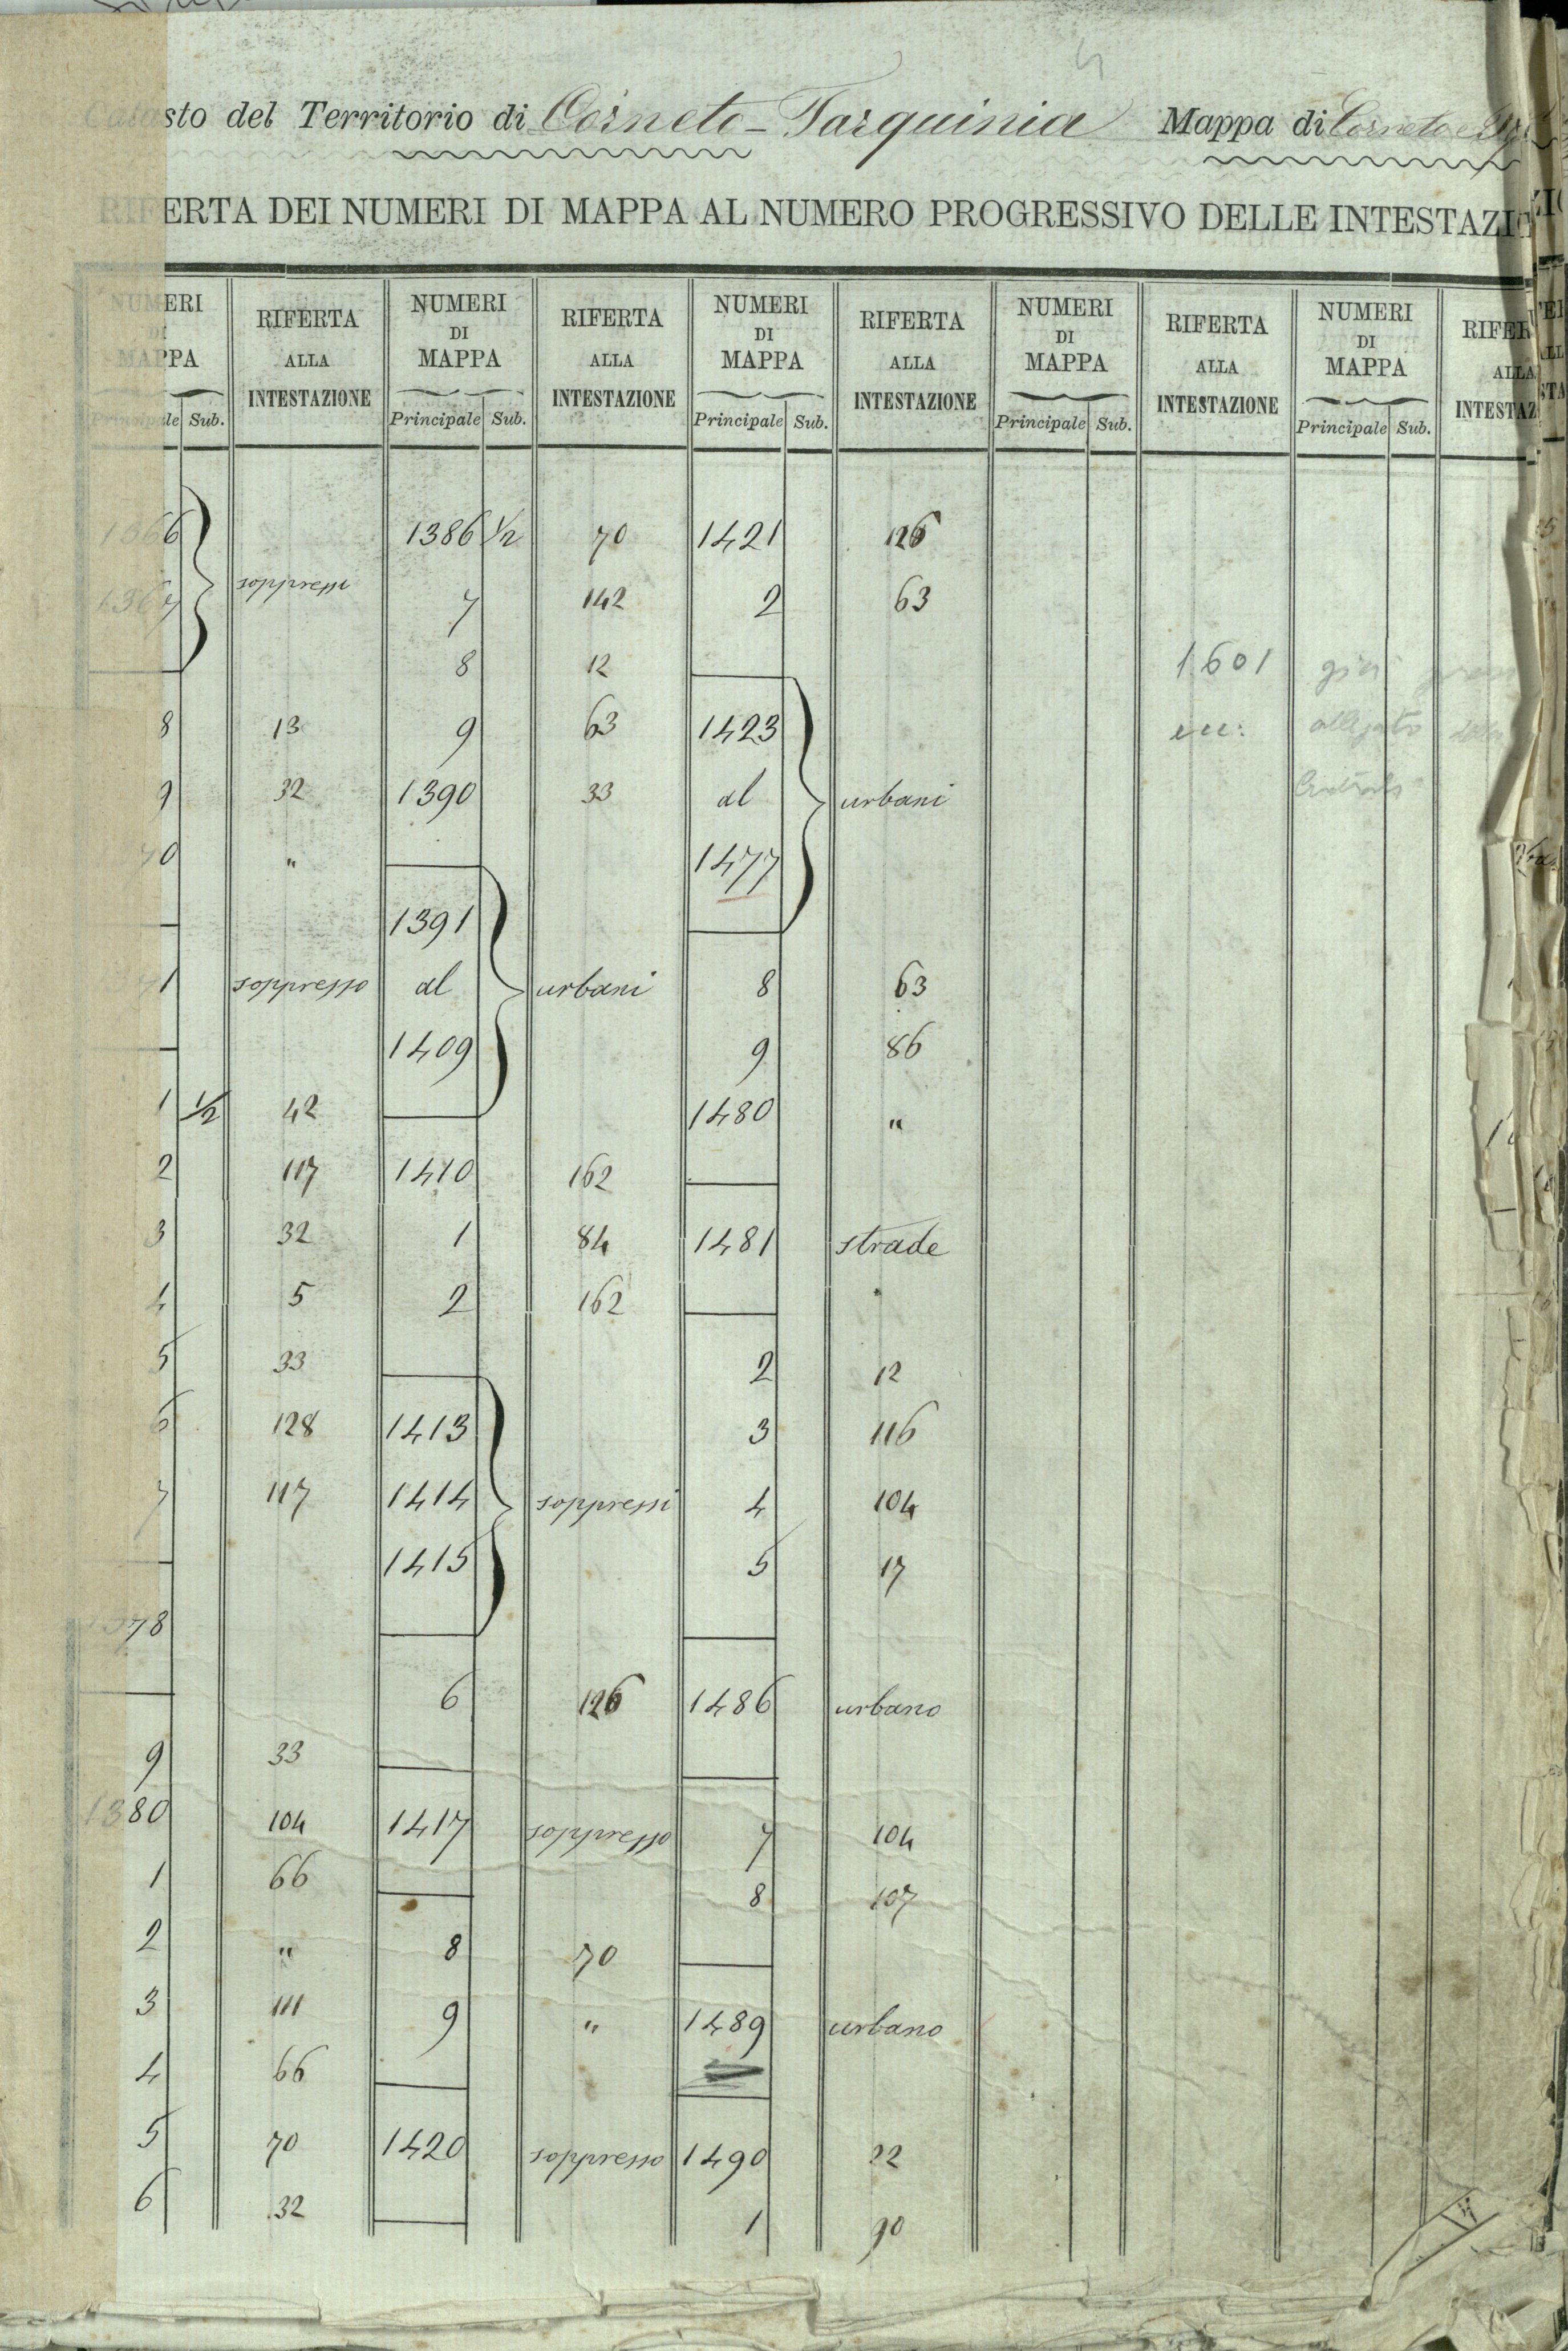 Catasto del Territorio di Corneto-Tarquinia Mappa di Corneto e
RIFERTA DEI NUMERI DI MAPPA AL NUMERO PROGRESSIVO DELLE INTESTAZIO
NUMERI DI MAPPA Principale Sub.
RIFERTA ALLA INTESTAZIONE
1366
1367 soppressi
8 13
9 32
70 "
1 soppresso
1 1/2 42
2 117
3 32
4 5
5 33
6 128
7 117
1378
9 33
1380 104
1 66
2 "
3 111
4 66
5 70
6 32
NUMERI DI MAPPA Principale Sub.
RIFERTA ALLA INTESTAZIONE
1386 1/2 70
7 142
8 12
9 63
1390 33
1391
al urbani
1409
1410 162
1 84
2 162
1413
1414 soppressi
1415
6 126
1417 soppresso
8 70
9 "
1420 soppresso
NUMERI DI MAPPA Principale Sub.
RIFERTA ALLA INTESTAZIONE
1421 126
2 63
1423
al urbani
1477
8 63
9 86
1480 "
1481 strade
2 12
3 116
4 104
5 17
1486 urbano
7 104
8 107
1489 urbano
1490 22
1 90
NUMERI DI MAPPA Principale Sub.
RIFERTA ALLA INTESTAZIONE
1601 già
ecc: allegato
NUMERI DI MAPPA Principale Sub.
RIFER ALLA INTESTAZ